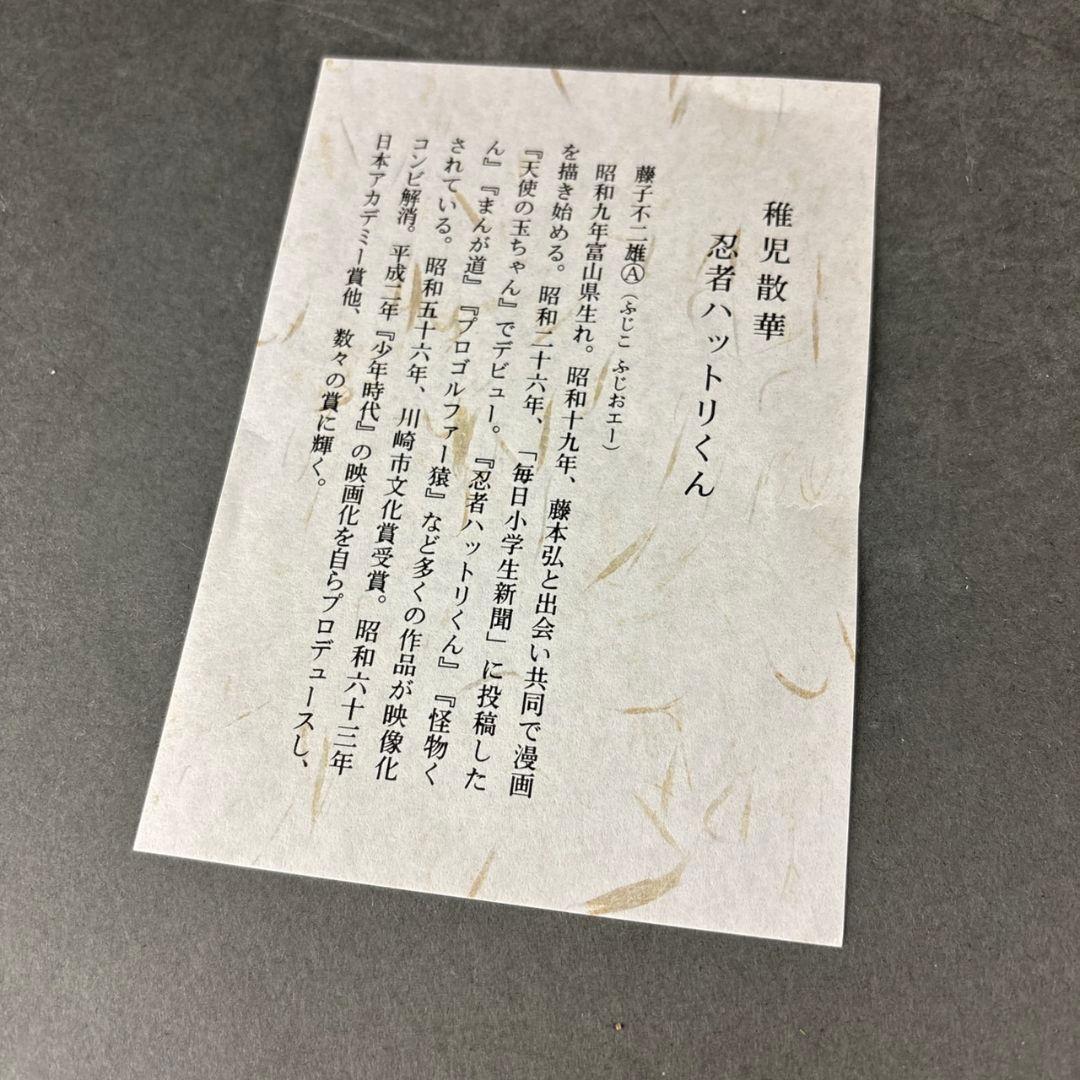 稚児散華
忍者ハットリくん
藤子不二雄Ⓐ(ふじこ ふじおエー)
昭和九年富山県生れ。昭和十九年、藤本弘と出会い共同で漫画
を描き始める。昭和二十六年、「毎日小学生新聞」に投稿した
『天使の玉ちゃん』でデビュー。『忍者ハットリくん』『怪物く
ん』『まんが道』『プロゴルファー猿』など多くの作品が映像化
されている。昭和五十六年、川崎市文化賞受賞。昭和六十三年
コンビ解消。平成二年『少年時代』の映画化を自らプロデュースし、
日本アカデミー賞他、数々の賞に輝く。